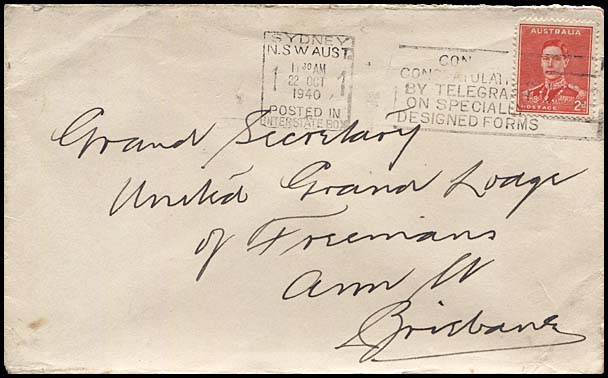 SYDNEY
N.S.W AUST.
11 30 AM
22 OCT
1940
POSTED IN
INTERSTATE BOX
CON
CONGRATULATI
BY TELEGRA
ON SPECIALL
DESIGNED FORMS
AUSTRALIA
POSTAGE 2d
Grand Secretary
United Grand Lodge
of Freemans
Ann St
Brisbane